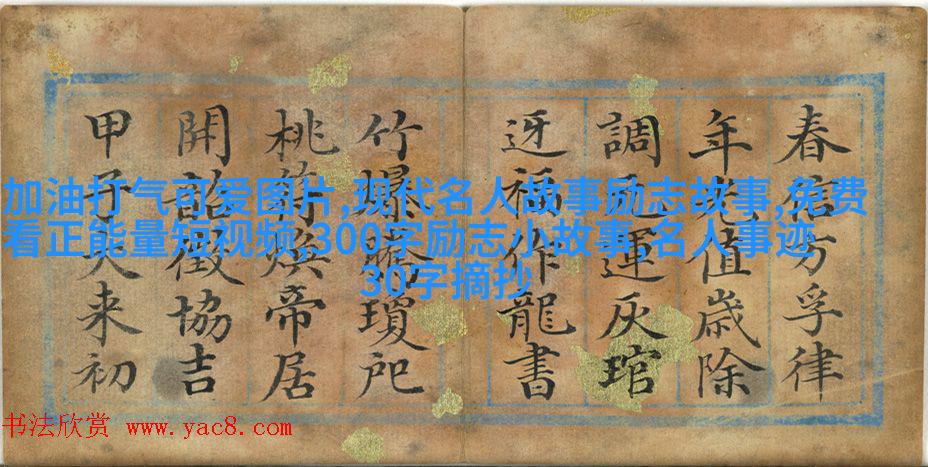 春信方孚律
年光值歲除
調元運灰琯
迓福作龍書
竹爆瓊戺
桃符煥帝居
開韶徵協吉
甲子来初
加油打气可爱图片,现代名人故事励志故事,免费
看正能量短视频,300字励志小故事,名人事迹
30字摘抄
书法欣赏 www.yac8.com